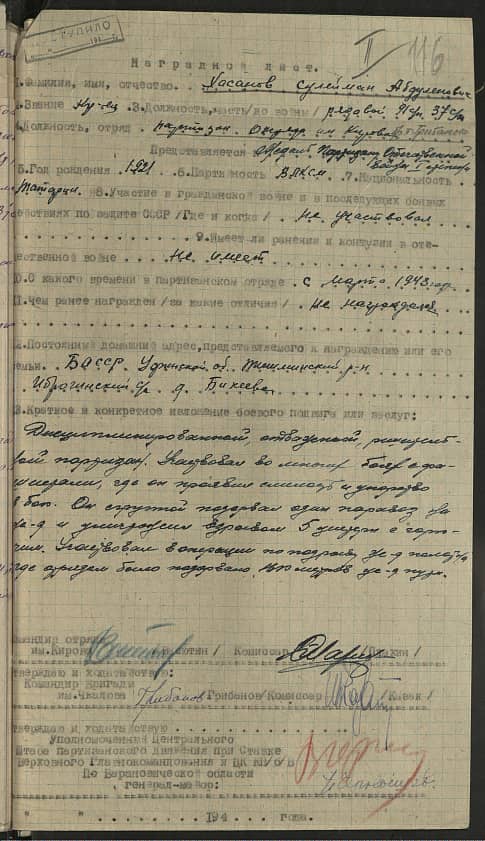 СТУПИЛО
II 116
Наградной лист.
1.Фамилия, имя, отчество. . Хасанов Сулейман Абдулович
2.Звание Кр-ец. 3.Должность, часть/до войны/ рядовой
4.Должность, отряд. партизан. Отряд им Кирова
Представляется Медали Партизану Отечественной
Войны I степени
5.Год рождения 1921 6.Партийность ВЛКСМ 7.Национальность
Татарин 8.Участие в гражданской войне и в последующих боевых
действиях по защите СССР /Где и когда/ Не участвовал
9.Имеет ли ранения и контузии в оте-
чественной войне Не имеет
10.С какого времени в партизанском отряде. с Марта 1943 года
11.Чем ранее награжден /за какие отличия/ Не награждался
2.Постоянный домашний адрес, представляемого к награждению или его
семьи. БАССР Уфимской об. р-н
с/с д. Бикеево
3.Краткое и конкретное изложение боевого подвига или заслуг:
Дисциплинированный, отважный,
партизан. Участвовал во многих боях с фа-
шистами, где он проявил смелость и упорство
в бою. Он с группой подорвал один паровоз на
ж-д и уничтожил взрывом 5 цистерн с горю-
чим. Участвовал в операции по подрыву ж-д полотна
где отрядом было подорвано метров ж-д пути.
Командир отряда
им.Кирова /Ватютин/ Комиссар
тверждаю и ходатайствую:
Командир Бригады
им.Чкалова Грибанов /Грибанов/ Комиссар /Казак/
тверждаю и ходатайствую
Уполномоченный Центрального
Штаба Партизанского Движения при Ставке
Верховного Главнокомандования и ЦК КП/б/Б
По Барановичской области
генерал-майор:
194 года.